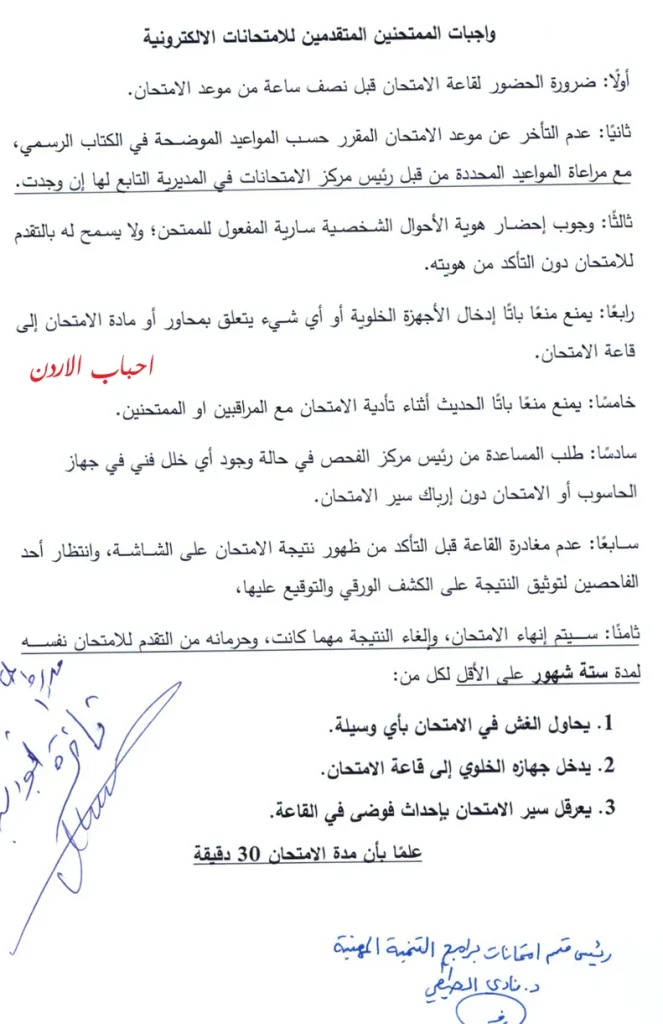 واجبات الممتحنين المتقدمين للامتحانات الالكترونية
أولًا: ضرورة الحضور لقاعة الامتحان قبل نصف ساعة من موعد الامتحان.
ثانيًا: عدم التأخر عن موعد الامتحان المقرر حسب المواعيد الموضحة في الكتاب الرسمي،
مع مراعاة المواعيد المحددة من قبل رئيس مركز الامتحانات في المديرية التابع لها إن وجدت.
ثالثًا: وجوب إحضار هوية الأحوال الشخصية سارية المفعول للممتحن؛ ولا يسمح له بالتقدم
للامتحان دون التأكد من هويته.
رابعًا: يمنع منعًا باتًا إدخال الأجهزة الخلوية أو أي شيء يتعلق بمحاور أو مادة الامتحان إلى
قاعة الامتحان.
احباب الاردن
خامسًا: يمنع منعًا باتًا الحديث أثناء تأدية الامتحان مع المراقبين او الممتحنين.
سادسًا: طلب المساعدة من رئيس مركز الفحص في حالة وجود أي خلل فني في جهاز
الحاسوب أو الامتحان دون إرباك سير الامتحان.
سابعًا: عدم مغادرة القاعة قبل التأكد من ظهور نتيجة الامتحان على الشاشة، وانتظار أحد
الفاحصين لتوثيق النتيجة على الكشف الورقي والتوقيع عليها،
ثامنًا: سيتم إنهاء الامتحان، وإلغاء النتيجة مهما كانت، وحرمانه من التقدم للامتحان نفسه
لمدة ستة شهور على الأقل لكل من:
1. يحاول الغش في الامتحان بأي وسيلة.
2. يدخل جهازه الخلوي إلى قاعة الامتحان.
3. يعرقل سير الامتحان بإحداث فوضى في القاعة.
علمًا بأن مدة الامتحان 30 دقيقة
رئيس قسم امتحانات برامج التنمية المهنية
د. نادي